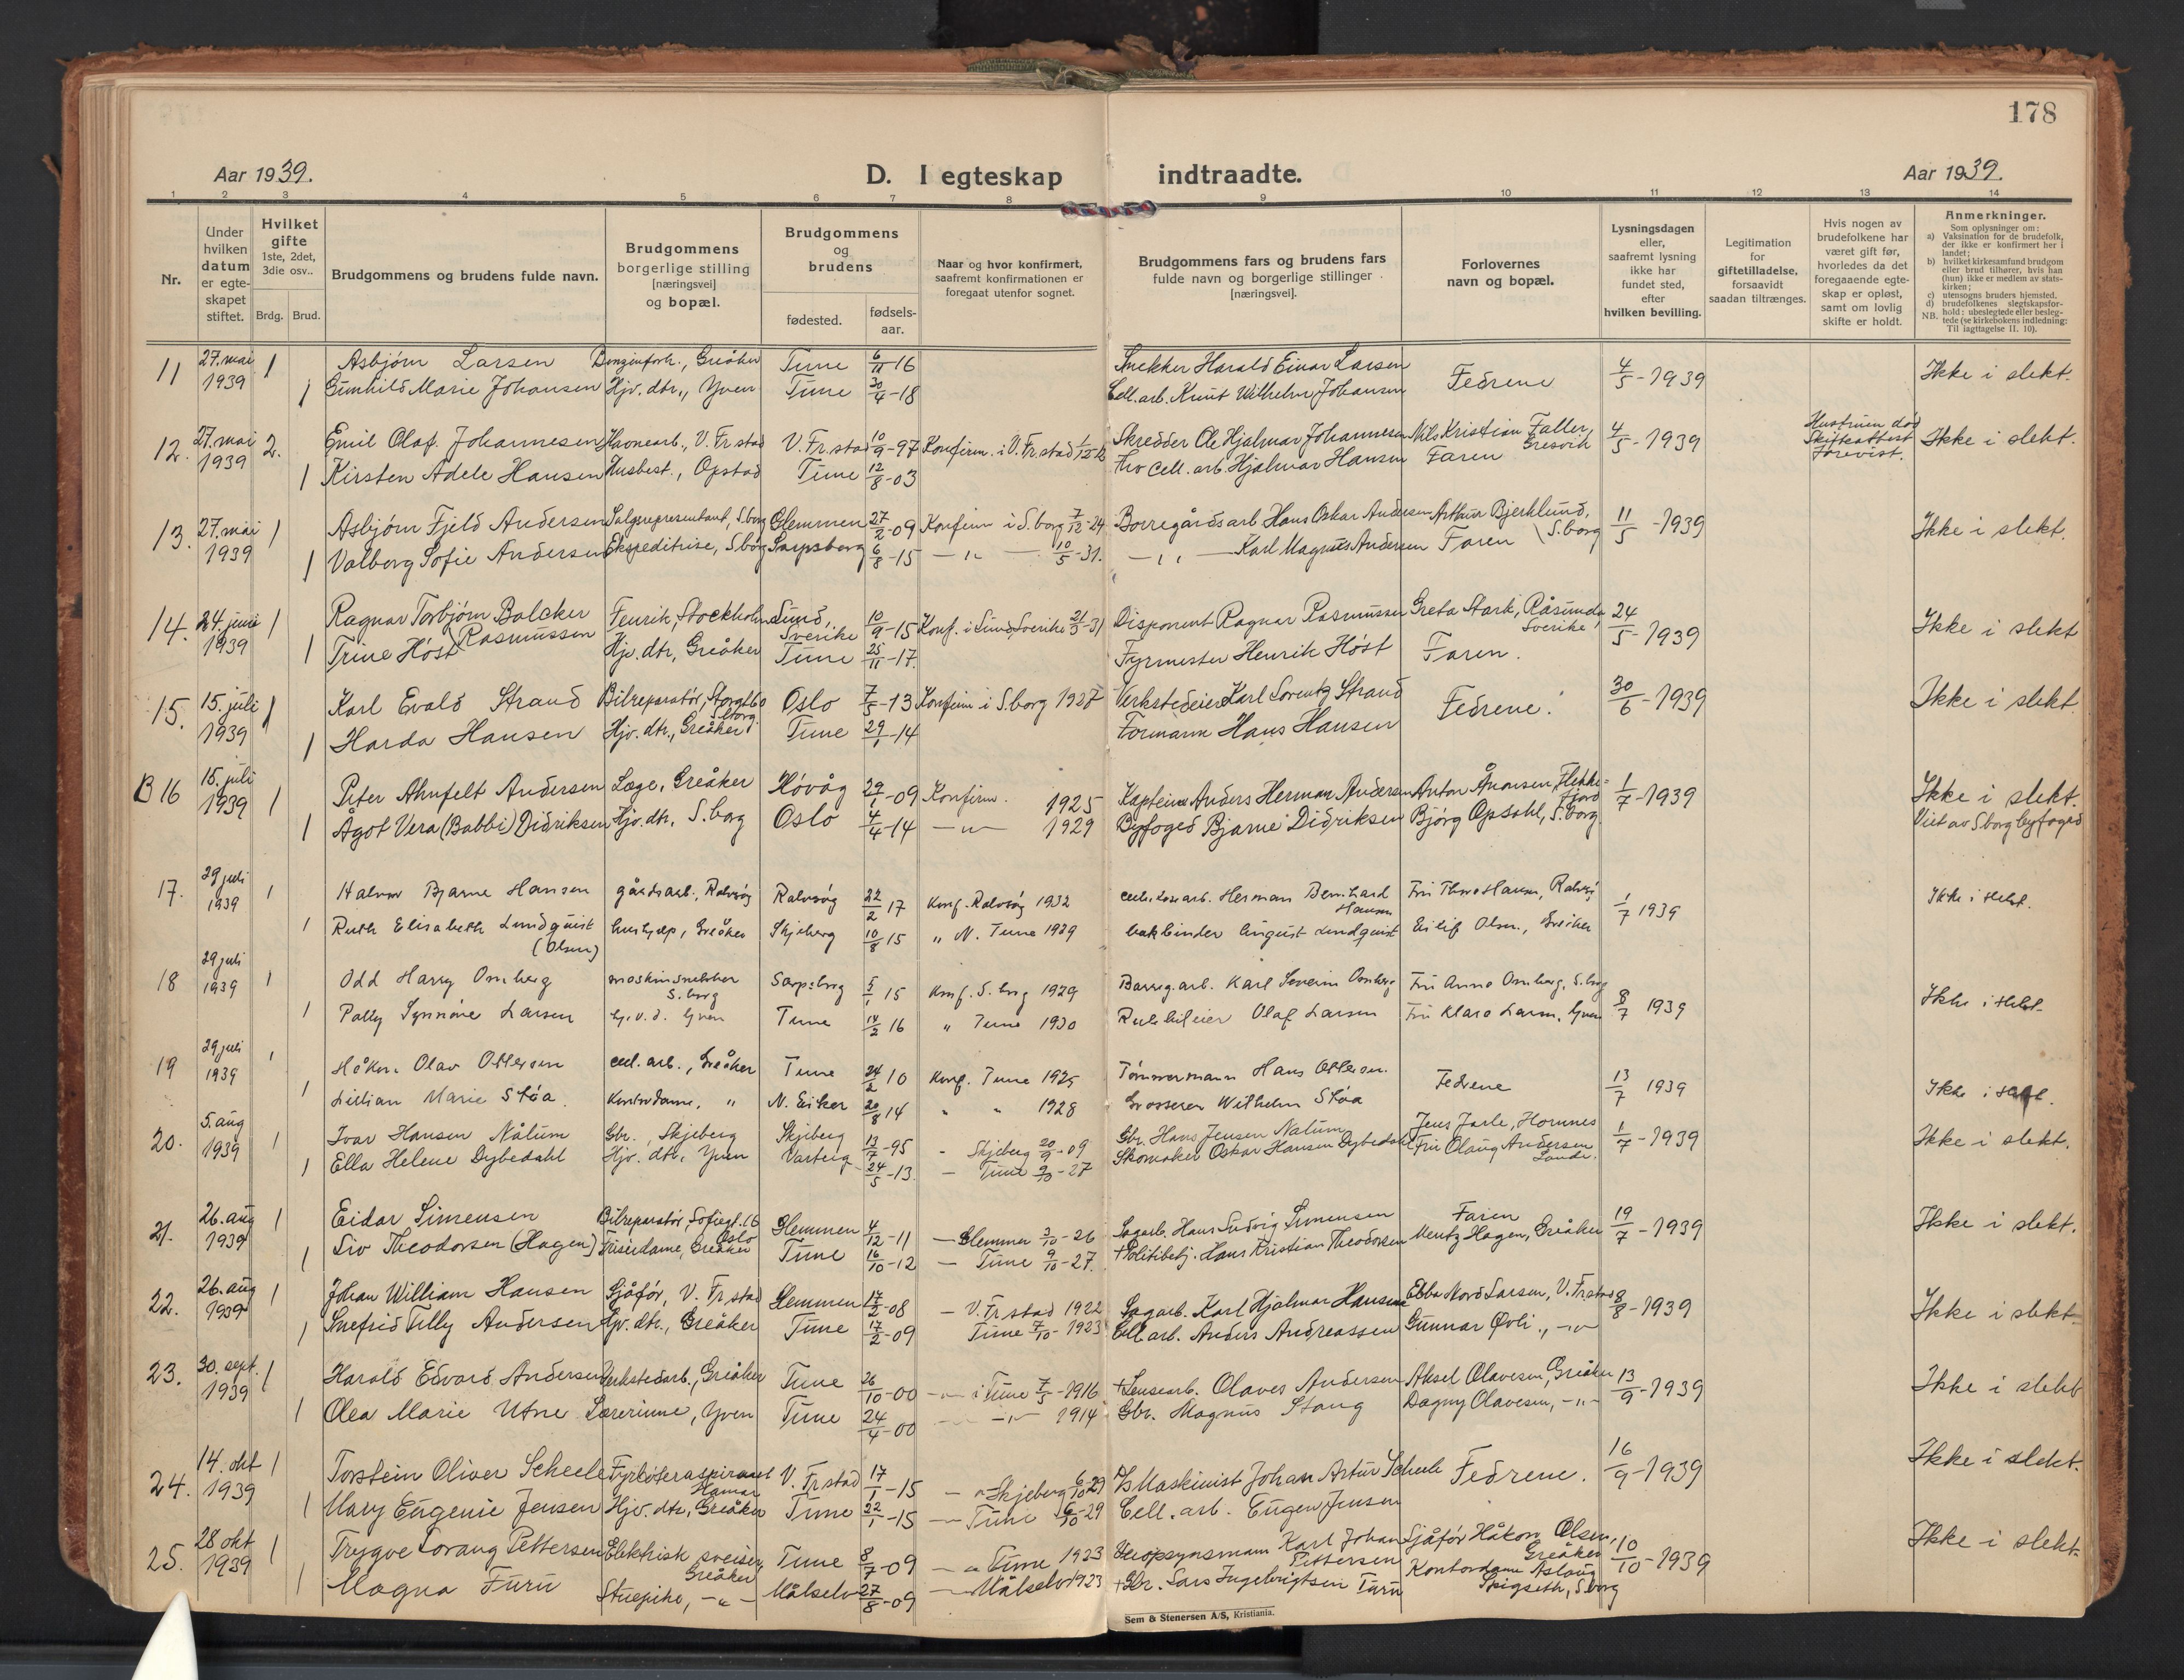 178
Aar 1939.
D. I egteskap indtraadte.
Aar 1939.
1 2 3 4 5 6 7 8 9 10 11 12 13 14
Nr.
Under hvilken datum er egteskapet stiftet.
Hvilket gifte 1ste, 2det, 3die osv..
Brdg. Brud.
Brudgommens og brudens fulde navn.
Brudgommens borgerlige stilling [næringsvei] og bopæl.
Brudgommens og brudens
fødested.
fødsels-aar.
Naar og hvor konfirmert, saafremt konfirmationen er foregaat utenfor sognet.
Brudgommens fars og brudens fars fulde navn og borgerlige stillinger [næringsvei].
Forlovernes navn og bopæl.
Lysningsdagen eller, saafremt lysning ikke har fundet sted, efter hvilken bevilling.
Legitimation for giftetilladelse, forsaavidt saadan tiltrænges.
Hvis nogen av brudefolkene har været gift før, hvorledes da det foregaaende egteskap er opløst, samt om lovlig skifte er holdt.
Anmerkninger.
Som oplysninger om:
a) Vaksination for de brudefolk, der ikke er konfirmert her i landet;
b) hvilket kirkesamfund brudgom eller brud tilhører, hvis han (hun) ikke er medlem av statskirken;
c) utensogns bruders hjemsted.
d) brudefolkenes slegtskapsforhold: ubeslegtede eller beslegtede (se kirkebokens indledning: Til iagttagelse II. 10).
NB.
11 27. mai 1939 1 Asbjørn Larsen Benzinforh., Greåker Tune 6/11-16 Snekker Harald Einar Larsen Fedrene 4/5-1939 Ikke i slekt.
1 Gunhild Marie Johansen Hjv. dtr., Yven Tune 30/4-18 Cell. arb. Knut Wilhelm Johansen
12. 27. mai 1939 2. Emil Olaf Johannesen Havnearb., V. Fr.stad V. Fr.stad 10/9-97 Konfirm. i V. Fr.stad Skredder Ole Hjalmar Johannesen Nils Kristian Faller, Gresvik 4/5-1939 Hustruen død Skifteattest forevist. Ikke i slekt.
1 Kirsten Adele Hansen Husbest., Opstad Tune 12/8-03 Cell. arb. Hjalmar Hansen Faren
13. 27. mai 1939 1 Asbjørn Fjeld Andersen Salgsrepresentant, S.borg Glemmen 27/2-09 Konfirm i S.borg 7/12-24 Borregårds arb Hans Oskar Andersen Arthur Bjerklund, S.borg 11/5-1939 Ikke i slekt.
1 Valborg Sofie Andersen Ekspeditrise, S.borg Sarpsborg 6/8-15 —"— 10/5-31. —"— Karl Magnus Andersen Faren
14. 24. juni 1939 1 Ragnar Torbjørn Balcker Rasmussen Fenrik, Stockholm Sund, Sverike 10/9-15 Konf. i Sund, Sverike 21/5-31 Disponent Ragnar Rasmussen Greta Stark, Råsunda, Sverike 24/5-1939 Ikke i slekt
1 Trine Høst Hjv. dtr, Greåker Tune 25/11-17. Fyrmester Henrik Høst Faren.
15. 15. juli 1939 1 Karl Evald Strand Bilreparatør, Storgt 60 S.borg. Oslo 7/5-13 Konfirm i S.borg 1927 Verkstedeier Karl Lorentz Strand Fedrene. 30/6-1939 Ikke i slekt
1 Harda Hansen Hjv. dtr., Greåker Tune 29/1-14 Formann Hans Hansen
B 16 15. juli 1939 1 Peter Ahnfelt Andersen Læge, Greåker Høvåg 29/1-09 Konfirm. 1925 Kaptein Anders Herman Andersen Anton Ånonsen, Flekkefjord 1/7-1939 Ikke i slekt.
1 Ågot Vera (Babbi) Didriksen Hjv. dtr, S.borg Oslo 4/4-14 —"— 1929 Byfoged Bjarne Didriksen Bjørg Opsahl, S.borg. Viet av S.borg byfoged
17. 29 juli 1939 1 Halvor Bjarne Hansen gårdsarb., Rolvsøy Rolvsøy 22/2 17 Konf. Rolvsøy 1932 arb. Herman Bernhard Hansen Fru Hansen, Rolvsøy 1/7 1939 Ikke i slekt.
1 Ruth Elisabeth Lundquist (Olsen) hushjelp, Greåker Skjeberg 10/8 15 " N. Tune 1929 bokbinder August Lundquist Eilif Olsen, Greåker
18 29 juli 1939 1 Odd Harry Omberg maskinsnekker S.borg Sarpsborg 5/1 15 Konf. S.borg 1929 Borreg.arb. Karl Severin Omberg Fru Anna Omberg, S.borg 8/7 1939 Ikke i slekt.
1 Polly Synnøve Larsen hj.v.d. Yven Tune 14/2 16 " Tune 1930 Rutebileier Olaf Larsen Fru Klara Larsen, Yven
19 29 juli 1939 1 Håkon Olav Ottersen cell. arb., Greåker Tune 24/2 10 Konf. Tune 1925 Tømmermann Hans Ottersen. Fedrene 13/7 1939 Ikke i slekt.
1 Lillian Marie Støa. Kontordame, " N. Eiker 20/8 14 " " 1928 Grosserer Wilhelm Støa
20. 5. aug 1939 1 Ivar Hansen Nålum Gbr., Skjeberg Skjeberg 13/7-95 " Skjeberg 20/9-09 Gbr. Hans Jensen Nalum Jens Jarle, Hornnes 1/7-1939 Ikke i slekt.
1 Ella Helene Dybedahl Hjv. dtr, Yven Varteig 24/5-13. — Tune 9/10-27 Skomaker Oskar Hansen Dybedahl Fru Olaug Andersen Sande.
21. 26. aug 1939 1 Eidar Simensen Bilreparatør, Sofiegt. 16 Oslo Glemmen 4/12-11 — Glemmen 3/10-26 Sagarb. Hans Ludvig Simensen Faren 19/7-1939 Ikke i slekt.
1 Liv Theodorsen (Hagen) Frisørdame, Greåker Tune 16/10-12 — Tune 9/10-27. †Politibetj. Hans Kristian Theodorsen Mentz Hagen, Greåker
22. 26. aug 1939 1 Johan William Hansen Sjåfør, V. Fr.stad Glemmen 17/2-08 — V. Fr.stad 1922 Sagarb. Karl Hjalmar Hansen Ebba Nord Larsen, V. Fr.stad 8/8-1939 Ikke i slekt.
1 Snefrid Tilly Andersen Hjv. dtr., Greåker Tune 17/2-09 Tune 7/10-1923 Cell arb. Anders Andreassen Gunnar Øvli., —"—
23. 30. sept. 1939 1 Harald Edvard Andersen Verkstedarb., Greåker Tune 26/10-00 —"— i Tune 7/5-1916 †Lensearb. Olaves Andersen Aksel Olavesen, Greåker 13/9-1939 Ikke i slekt
1 Olea Marie Utne Lærerinne, Yven Tune 24/4-00 —"— —"— 1914 Gbr. Magnus Stang Dagny Olavesen, —"—
24. 14. okt 1939 1 Torstein Oliver Scheele Fyrbøteraspirant Hamar V. Fr.stad 17/1-15 —"— Skjeberg 6/10-29 Maskinist Johan Artur Scheele Fedrene. 16/9-1939 Ikke i slekt.
1 Mary Eugenie Jensen Hjv. dtr., Greåker Tune 22/1-15 — Tune 6/10-29 Cell. arb. Eugen Jensen
25. 28 okt 1939 1 Trygve Lorang Pettersen Elektrisk sveiser, Greåker Tune 8/7-09 —"— Tune 1923 Veiopsynsmann Karl Johan Pettersen Sjåfør Håkon Olsen, Greåker 10/10-1939 Ikke i slekt.
1 Magna Furu Stuepike, —"— Målselv 27/8-09 — Målselv 1923 †Gbr. Lars Ingebrigtsen Furu Kontordame Aslaug Spigseth, S.borg
Sem & Stenersen A/S, Kristiania.